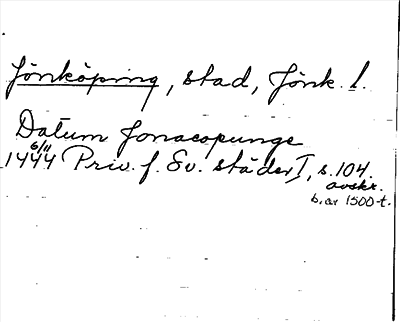 Jönköping, stad, Jönk. l.
Datum Jonacopunge
6/11
1444 Priv. f. Sv. städer I, s. 104.
avskr.
b. av 1500-t.